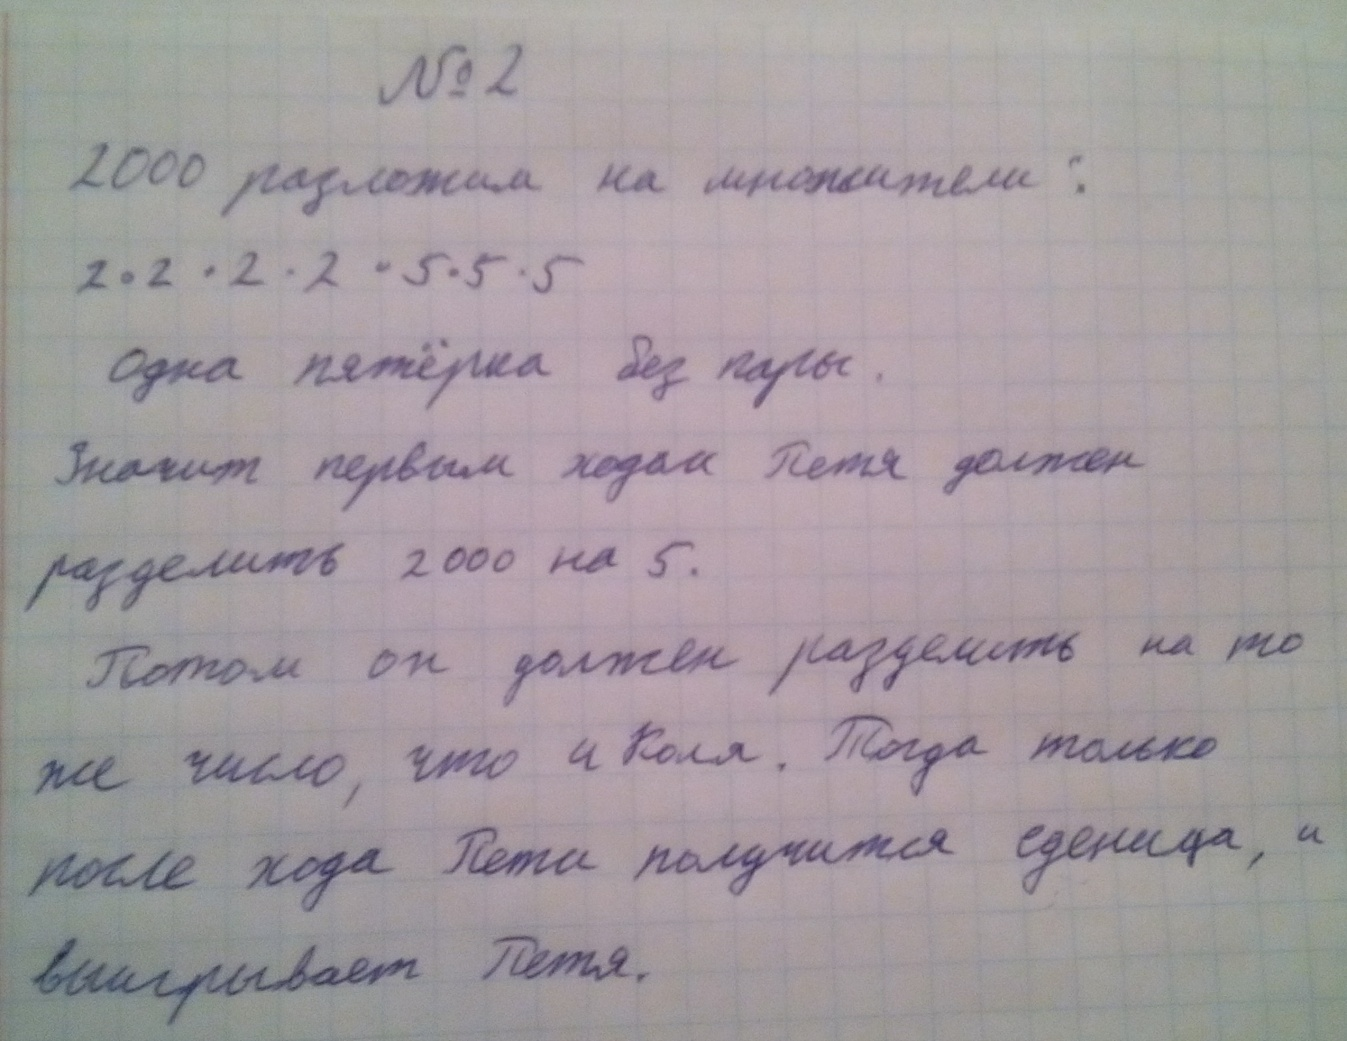 №2
2000 разложим на множители:
2·2·2·2·5·5·5
Одна пятёрка без пары.
Значит первым ходом Петя должен
разделить 2000 на 5.
Потом он должен разделить на то
же число, что и Коля. Тогда только
после хода Пети получится еденица, и
выигрывает Петя.